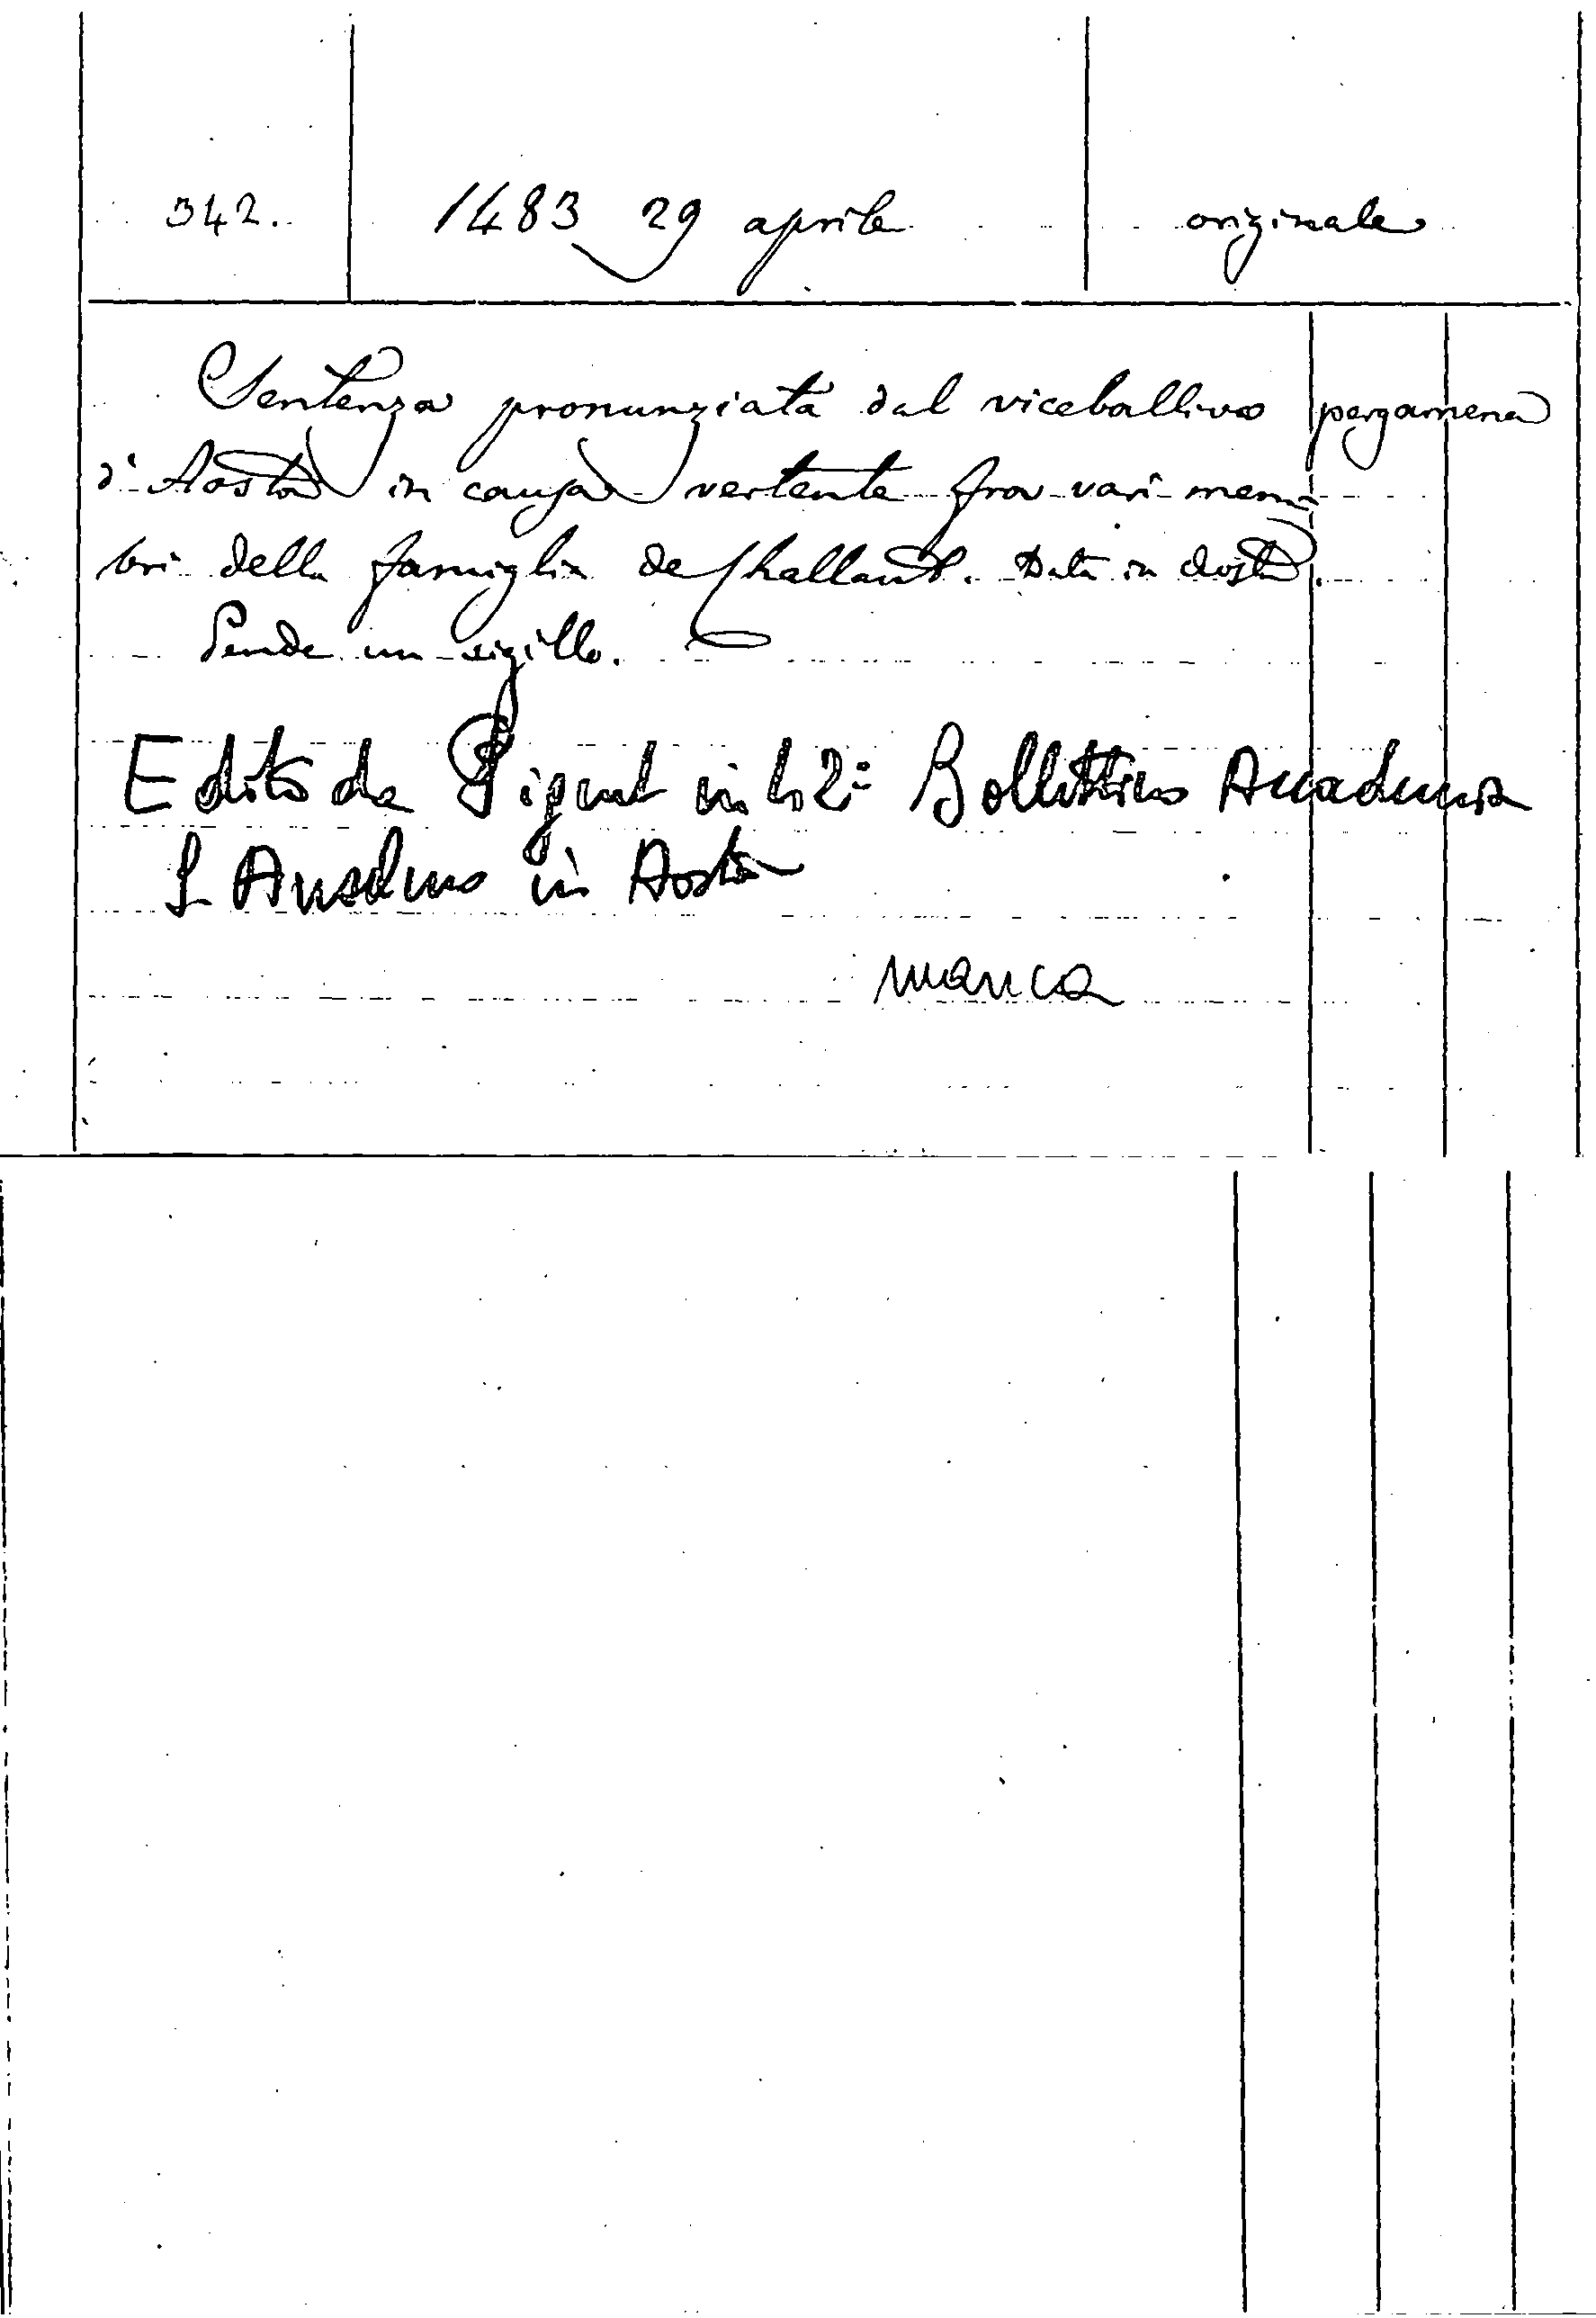 342. 1483 29 aprile originale
Sentenza pronunziata dal viceballivo pergamena
d'Aosta in causa vertente fra vari mem-
bri della famiglia de Challant. Data in Aosta.
Pende un sigillo.
Edito da in 2º Bollettino Accademia
S. Anselmo in Aosta
manca